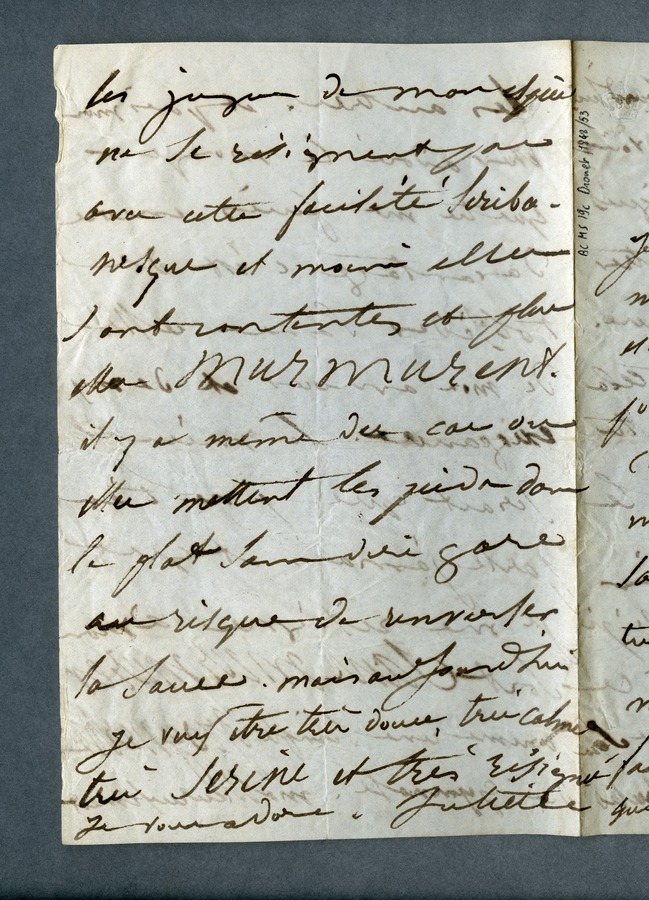 les jujus de mon espèce
ne se résignent pas
avec cette facilité scriba-
nesque et moins elles
sont contentes et plus
elles MURMURENT.
il y a même des cas où
elles mettent les pieds dans
le plat sans dire gare
au risque de renverser
la sauce. mais aujourd'hui
je veux être très douce, très calme
très serine et très résignée
je vous adore. Juliette
BC MS 19c Drouet /1848/53